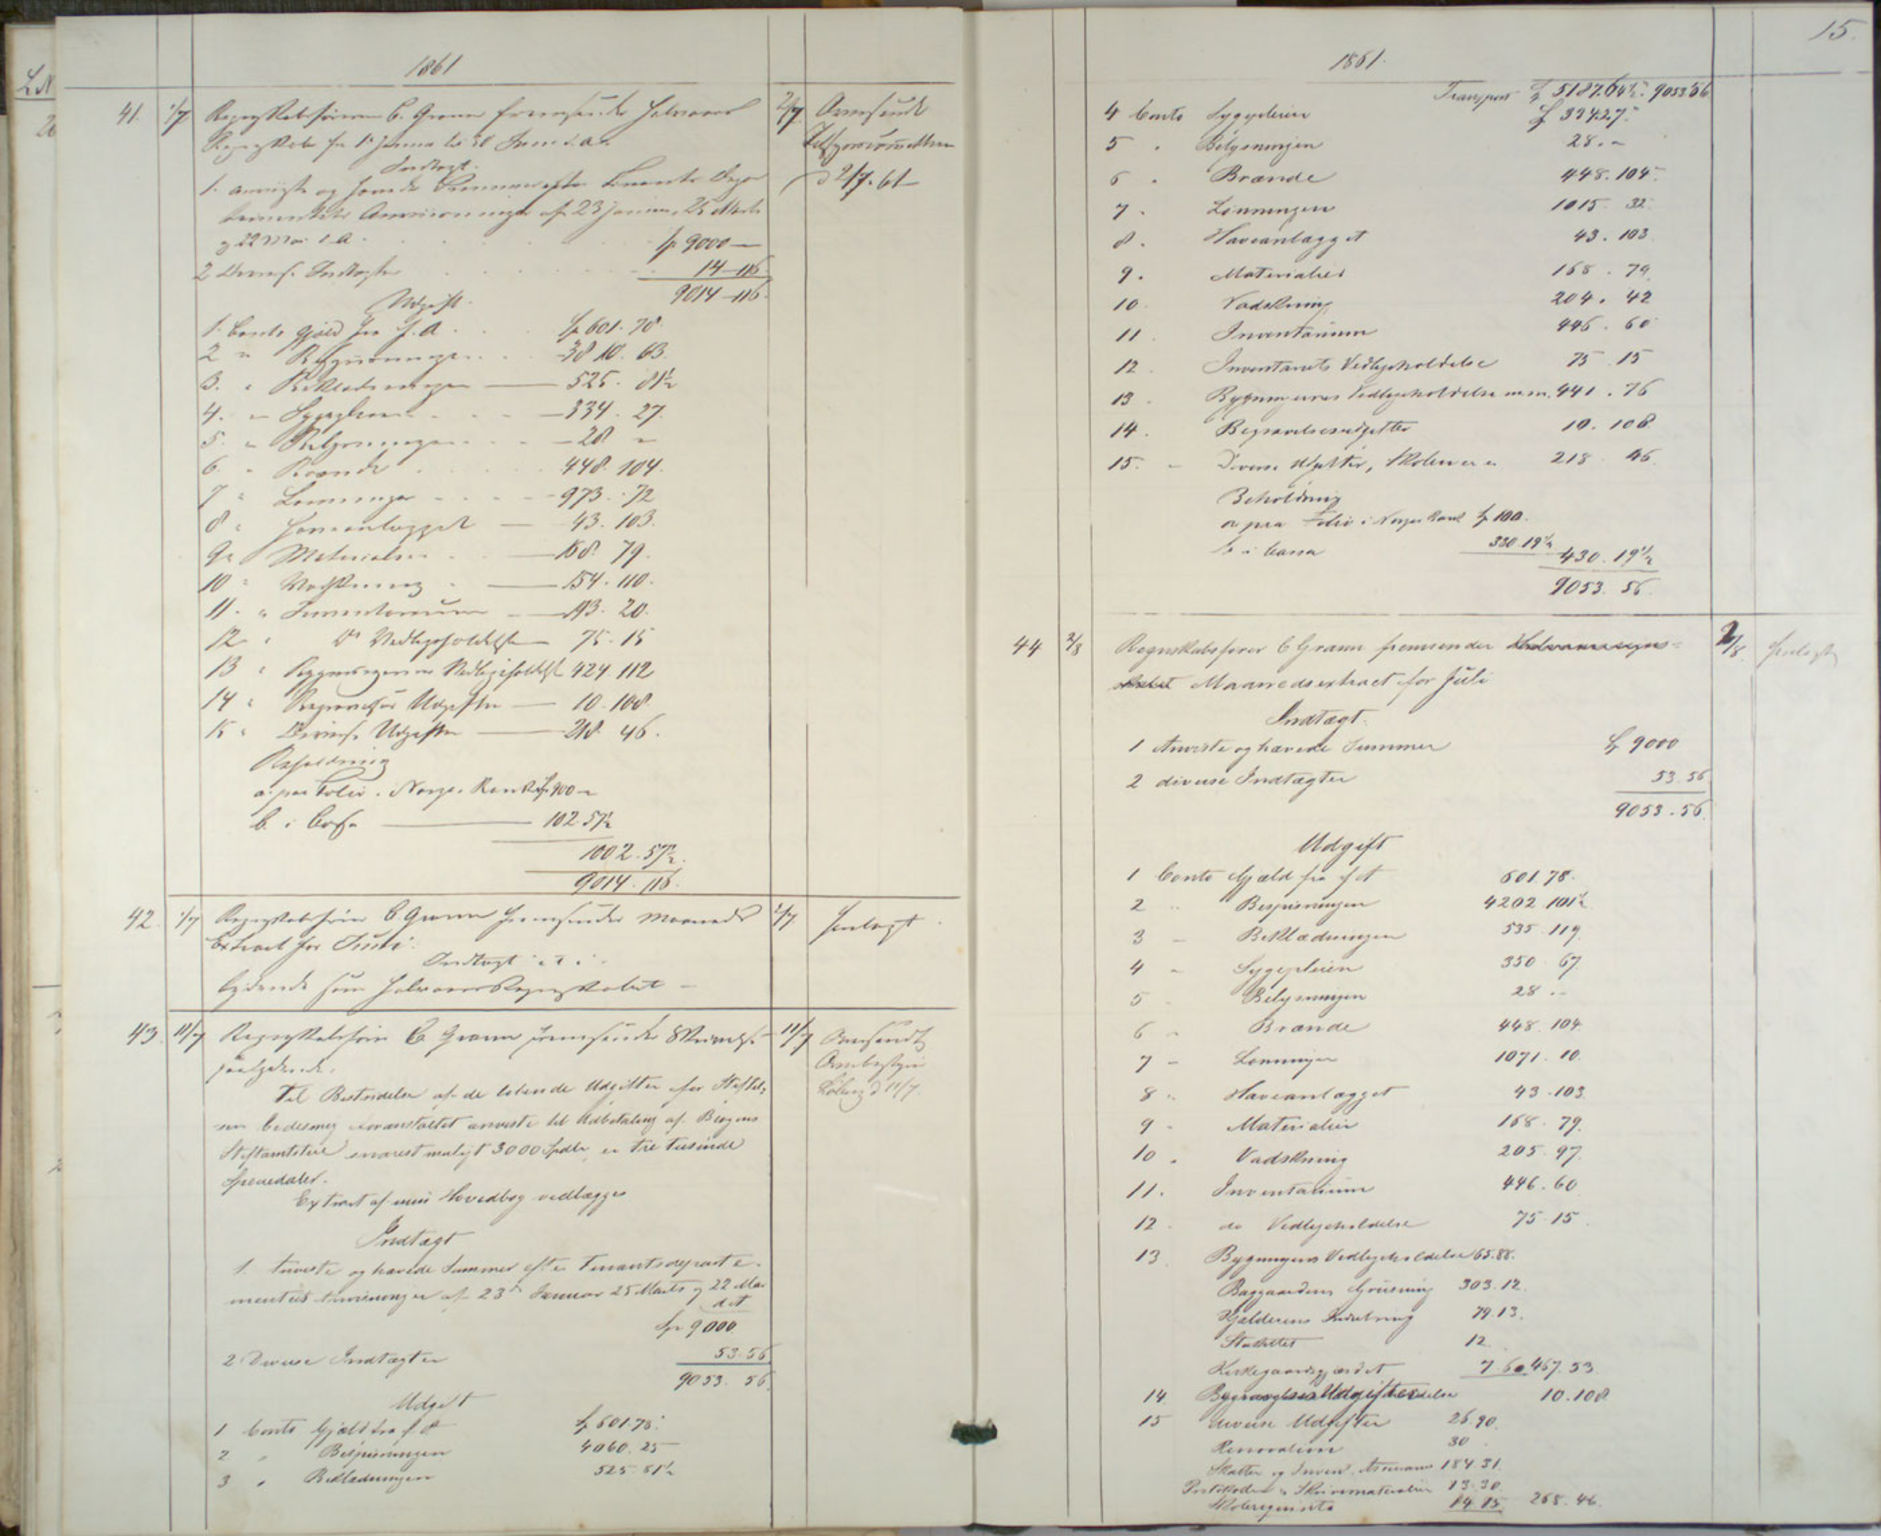 L N
1861
41. 1/7 Regnskabsfører C. Grann fremsender Halvaars 2/7 Oversendt
Regnskab fra 1e Januar til 30 Juni d.a.
Indtægt. d 2/7. 61
1. anviste og hævede Summer efter
Anviisninger af 23 Januar, 25 Marts
og 22 Mai d.A. Sp 9000 —
2 Diverse Indtægter 14 — 116
9014 — 116.
Udgift.
1. Conto Gjæld fra f.A. Sp 601. 78.
2 " Bespiisningen 3810. 63.
3. " Beklædningen 525. 81½
4. " Sygepleien 334. 27.
5. " Belysningen 28 "
6. " Brænde 448. 104.
7 " Lønninger 973. 72
8 " Haveanlægget 43. 103.
9 " Materialier 168. 79.
10 " Vadskning 154. 110.
11. " Inventarium 20.
12 " Do Vedligeholdelse 75. 15
13 " Bygningernes Vedligeholdelse 424 112
14 " Begravelses Udgifter 10. 108.
15 " Diverse Udgifter 218. 46.
Beholdning
a. paa Folio i Norges Bank Sp 900 —
b. i Cassa 102. 57½
1002. 57½.
9014. 116.
42. 1/7 Regnskabsfører C Grann fremsender Maaneds 2/7 henlagt
Extract for Juni.
Indtægt
lydende som Halvaars Regnskabet —
43. 11/7 Regnskabsfører C Grann fremsender Skrivelse 11/7 Oversendt
saalydende.
Til Bestridelse af de løbende Udgifter for Stiftel-
sen bedes mig foranstaltet anviste til Udbetaling af Bergens
Stiftamtstue snarest muligt 3000 Spdlr er tre tusinde
Speciedaler.
Extract af min Hovedbog vedlægges
Indtægt
1. Anviste og hævede Summer efter Finantsdeparte-
mentets Anvisninger af 23de Januar 25 Marts og 22 Mai
d.A.
Sp 9000
2 Diverse Indtægter 53. 56
9053. 56.
Udgift
1 Conto Gjæld fra f A Sp 601. 78.
2 " Bespisningen 4060. 25
3 " Beklædningen 525. 81½
15.
1861.
Transport Sp 5187. 64½. 9053 56
4 Conto Sygepleien Sp 334. 27.
5 " Belysningen 28. "
6 " Brænde 448. 104.
7 " Lønningen 1015. 32.
8 " Haveanlægget 43. 103.
9. Materialier 168. 79.
10. Vadskning 204. 42
11 Inventarium 446. 60
12 Inventariets Vedligeholdelse 75. 15
13 Bygningernes Vedligeholdelse m.m. 441. 76
14. Begravelsesudgifter 10. 108
15. Diverse Udgifter, Skolen 218. 46.
Beholdning
a paa Folio i Norges Bank Sp 100.
b i Cassa 330. 19½
430. 19½
9053. 56.
44 2/8 Regnskabsfører C Grann fremsender Halvaarsregns- 2/8. henlagt
kabet Maanedsextract for Juli
Indtægt.
1 Anviste og hævede Summer Sp 9000
2 diverse Indtægter 53 56
9053. 56.
Udgift
1 Conto Gjæld fra f A 601. 78.
2 " Bespisningen 4202. 101½
3 Beklædningen 535. 119.
4 Sygepleien 350. 67
5 Belysningen 28. -
6 Brænde 448. 104
7 Lønninger 1071. 10.
8 Haveanlægget 43. 103
9 Materialier 168. 79.
10. Vadskning 205. 97.
11. Inventarium 446. 60
12 do Vedligeholdelse 75. 15
13 Bygningens Vedligeholdelse 65. 88.
Baggaardens Gruusning 303. 12.
Kjelderens Indretning 79. 13.
Stakittet 12
Kirkegaardsgjærdet 7. 60 467. 53.
14 Begravelses Udgifter 10. 108
15 diverse Udgifter 26. 90.
Renovation 30
Skatter og Assurance 184. 31.
Skrivematerialier 13. 30.
Skolerequisita 14. 15 268. 46.